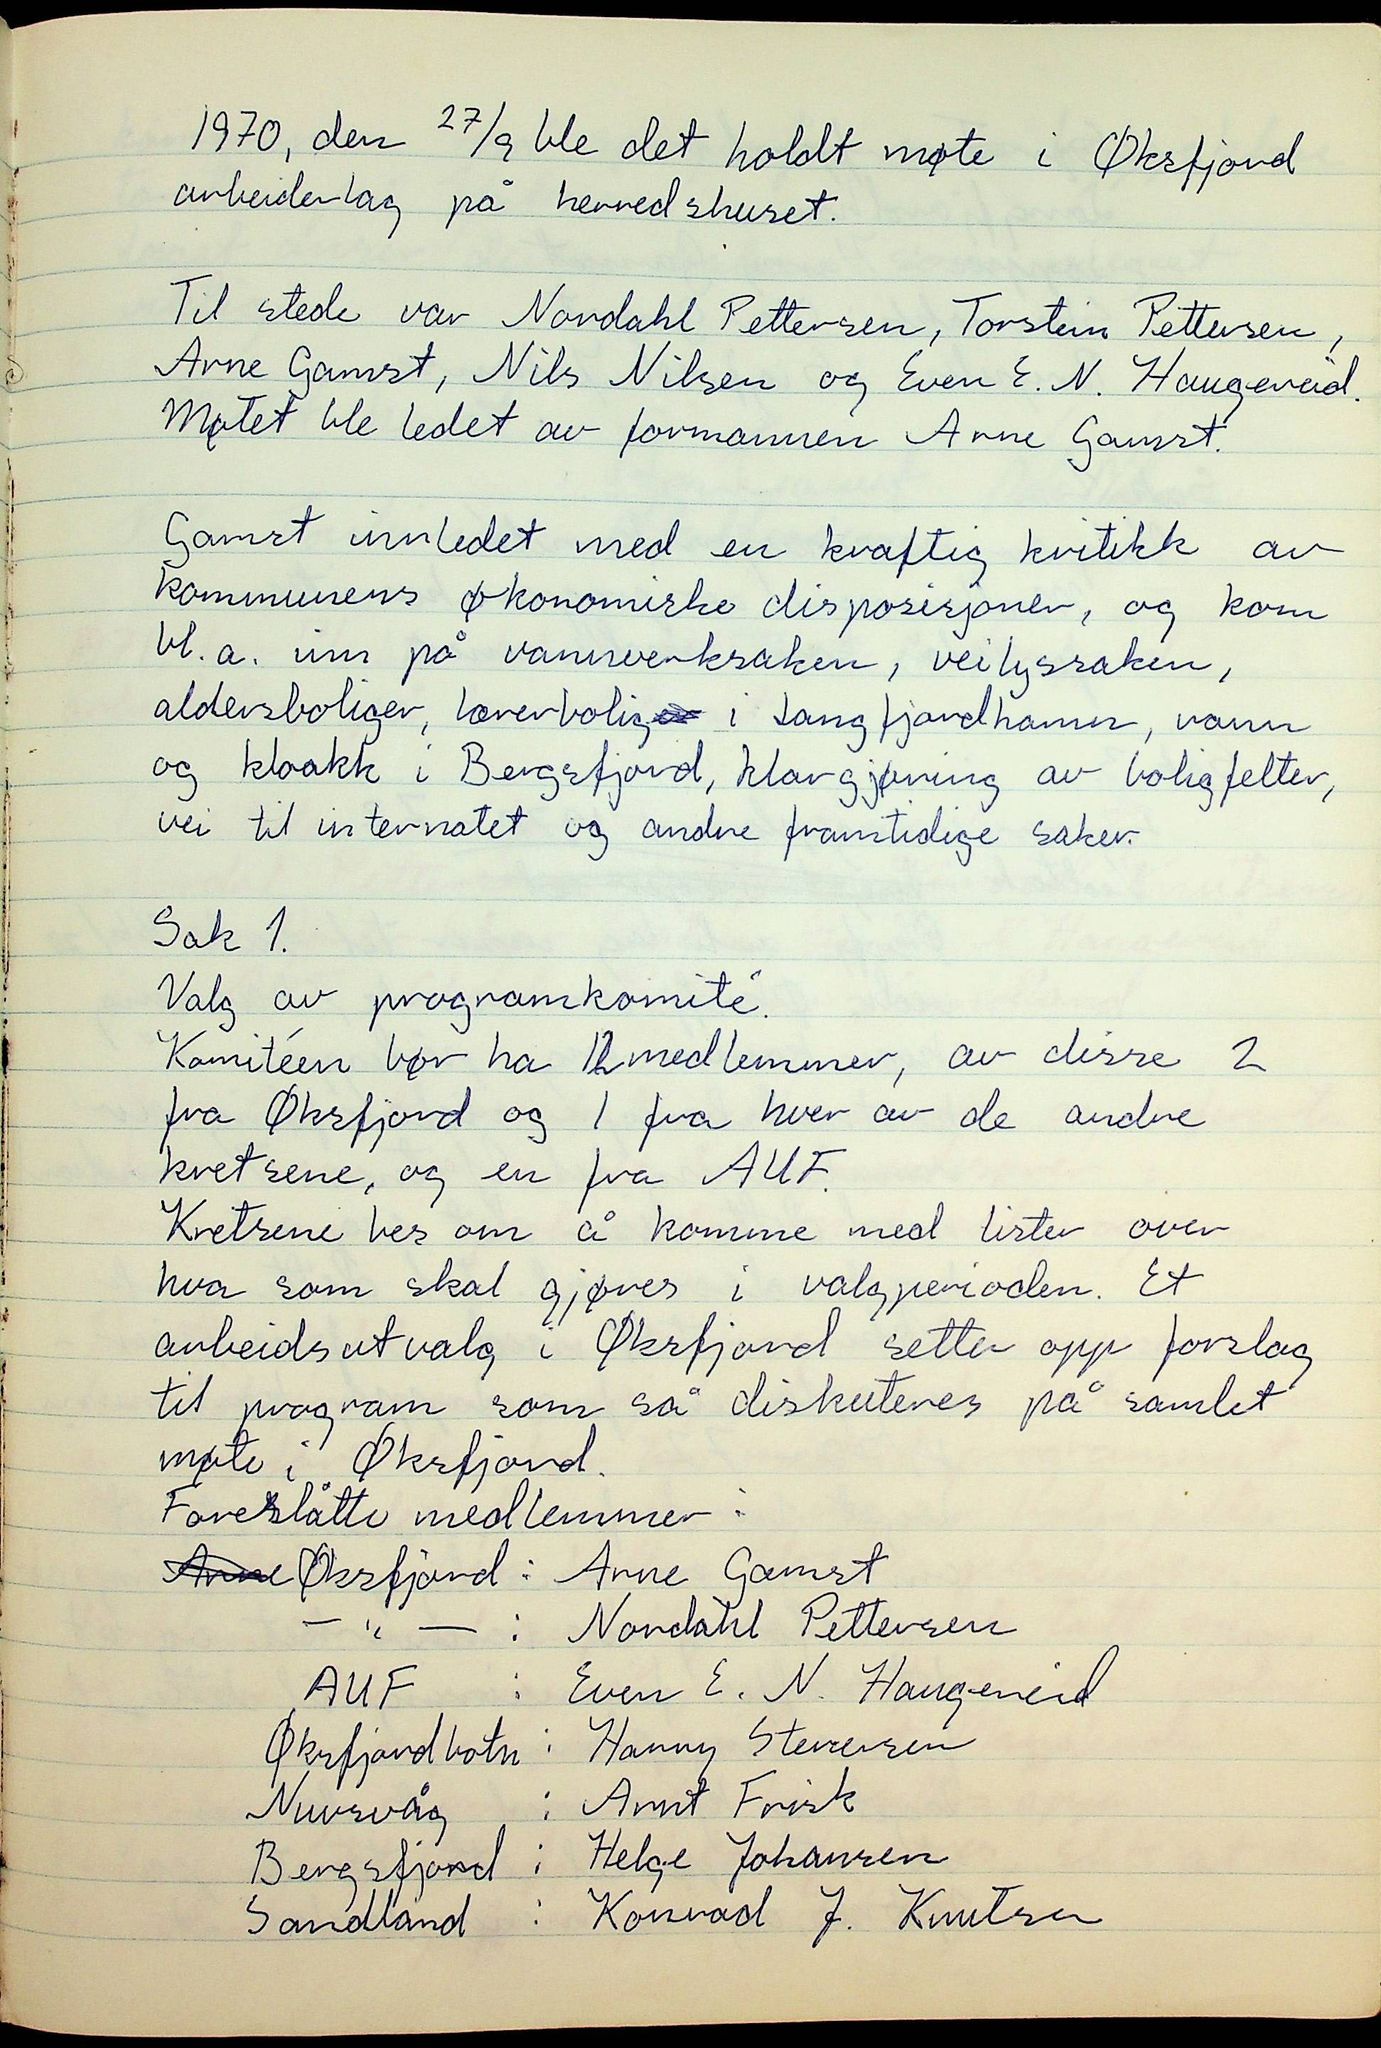 1970, den 27/9 ble det holdt møte i Øksfjord
arbeiderlag på herredshuset.
Til stede var Nordahl Pettersen, Torstein Pettersen,
Arne Gamst, Nils Nilsen og Even E. N. Haugeneid.
Møtet ble ledet av formannen Arne Gamst.
Gamst innledet med en kraftig kritikk av
kommunens økonomiske disposisjoner, og kom
bl. a. inn på vannverksaken, veilyssaken,
aldersboliger, lærerbolig i Langfjordhamn, vann
og kloakk i Bergsfjord, klargjøring av boligfelter,
vei til internatet og andre framtidige saker.
Sak 1.
Valg av programkomité.
Komitéen bør ha 12 medlemmer, av disse 2
fra Øksfjord og 1 fra hver av de andre
kretsene, og en fra AUF.
Kretsene bes om å komme med lister over
hva som skal gjøres i valgperioden. Et
arbeidsutvalg i Øksfjord setter opp forslag
til program som så diskuteres på samlet
møte i Øksfjord.
Foreslåtte medlemmer :
Arne Øksfjord : Arne Gamst
— " — : Nordahl Pettersen
AUF : Even E. N. Haugeneid
Øksfjordbotn : Hanny
Nuvsvåg : Arnt Frisk
Bergsfjord : Helge Johansen
Sandland : Konrad J. Knutsen